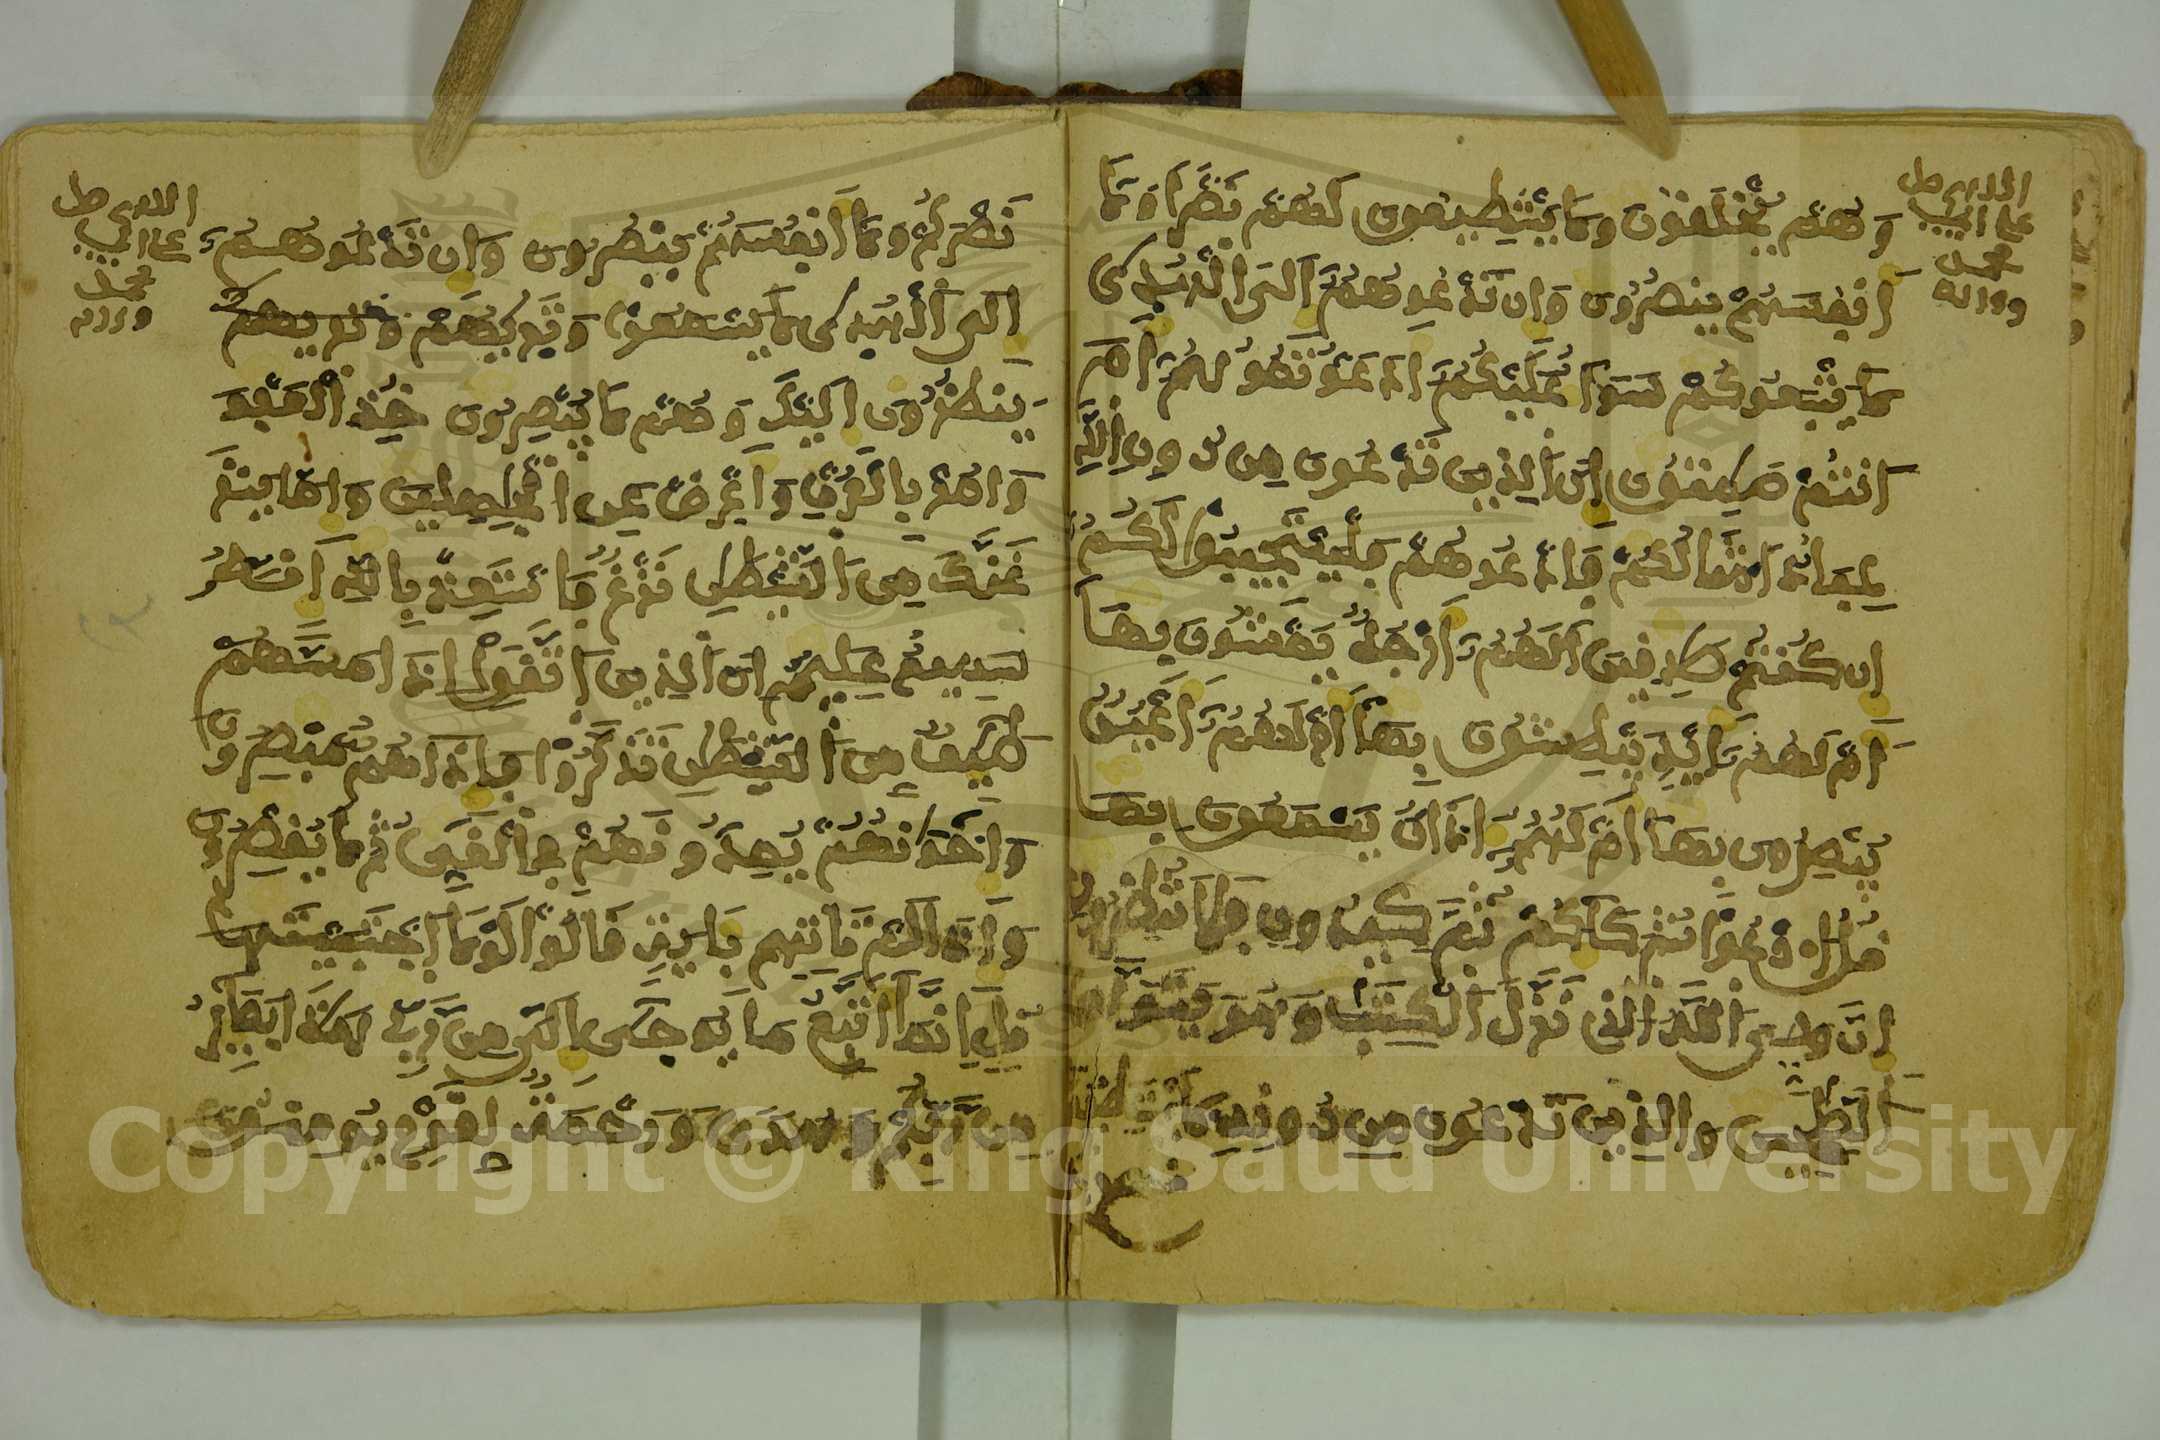 اللهم صل
على النبي
محمد
وءاله
وَهُمْ يُخْلَقُونَ وَمَا يَسْتَطِيعُونَ لَهُمْ نَصْرًا وَمَا
أَنفُسَهُمْ يَنصُرُونَ وَإِن تَدْعُوهُمْ إِلَى الْهُدَى
لَا يَتْبَعُوكُمْ سَوَا عَلَيْكُمْ أَدَعَوْتُمُوهُمْ أَمْ
أَنتُمْ صَمِتُونَ إِنَّ الَّذِينَ تَدْعُونَ مِن دُونِ اللَّهِ
عِبَادٌ أَمْثَالُكُمْ فَادْعُوهُمْ فَلْيَسْتَجِيبُوا لَكُمْ
إِن كُنتُمْ صَدِقِينَ أَلَهُمْ أَرْجُلٌ يَمْشُونَ بِهَا
أَمْ لَهُمْ أَيْدٍ يَبْطِشُونَ بِهَا أَمْ لَهُمْ أَعْيُنٌ
يُبْصِرُونَ بِهَا أَمْ لَهُمْ ءَاذَانٌ يَسْمَعُونَ بِهَا
قُلُ ادْعُوا شُرَكَاءَكُمْ ثُمَّ كِيدُونِ فَلَا تُنظِرُونِ
إِنَّ وَلِيِّيَ اللَّهُ الَّذِي نَزَّلَ الْكِتَبَ وَهُوَ يَتَوَلَّى
الصَّلِحِينَ وَالَّذِينَ تَدْعُونَ مِن دُونِهِ لَا يَسْتَطِيعُونَ
اللهم صل
على النبي
محمد
وءاله
نَصْرَكُمْ وَمَا أَنفُسَهُمْ يَنصُرُونَ وَإِن تَدْعُوهُمْ
إِلَى الْهُدَى لَا يَسْمَعُوا وَتَرَيهُمْ
يَنظُرُونَ إِلَيْكَ وَهُمْ لَا يُبْصِرُونَ خُذِ الْعَفْوَ
وَامُرْ بِالْعُرْفِ وَأَعْرِضْ عَنِ الْجَهِلِينَ وَإِمَّا يَنزَغَ
نَّكَ مِنَ الشَّيْطَنِ نَزْغٌ فَاسْتَعِذْ بِاللَّهِ إِنَّهُ
سَمِيعٌ عَلِيمٌ إِنَّ الَّذِينَ اتَّقَوْا إِذَا مَسَّهُمْ
طَيْفٌ مِنَ الشَّيْطَنِ تَذَكَّرُوا فَإِذَا هُمْ مُبْصِرُونَ
وَإِخْوَانُهُمْ يُمِدُّونَهُمْ فِي الْغَيِّ ثُمَّ لَا يُقْصِرُونَ
وَإِذَا لَمْ تَاتِهِم بِئَايَةٍ قَالُوا لَوْلَا اجْتَبَيْتَهَا
قُلِ إِنَّمَا أَتَّبِعُ مَا يُوحَى إِلَيَّ مِن رَّبِّي هَذَا بَصَائِرُ
مِن رَّبِّكُمْ وَهُدًى وَرَحْمَةٌ لِقَوْمٍ يُومِنُونَ
Copyright © King Saud University